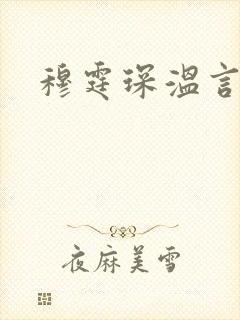 穆霆琛温言
夜麻美雪